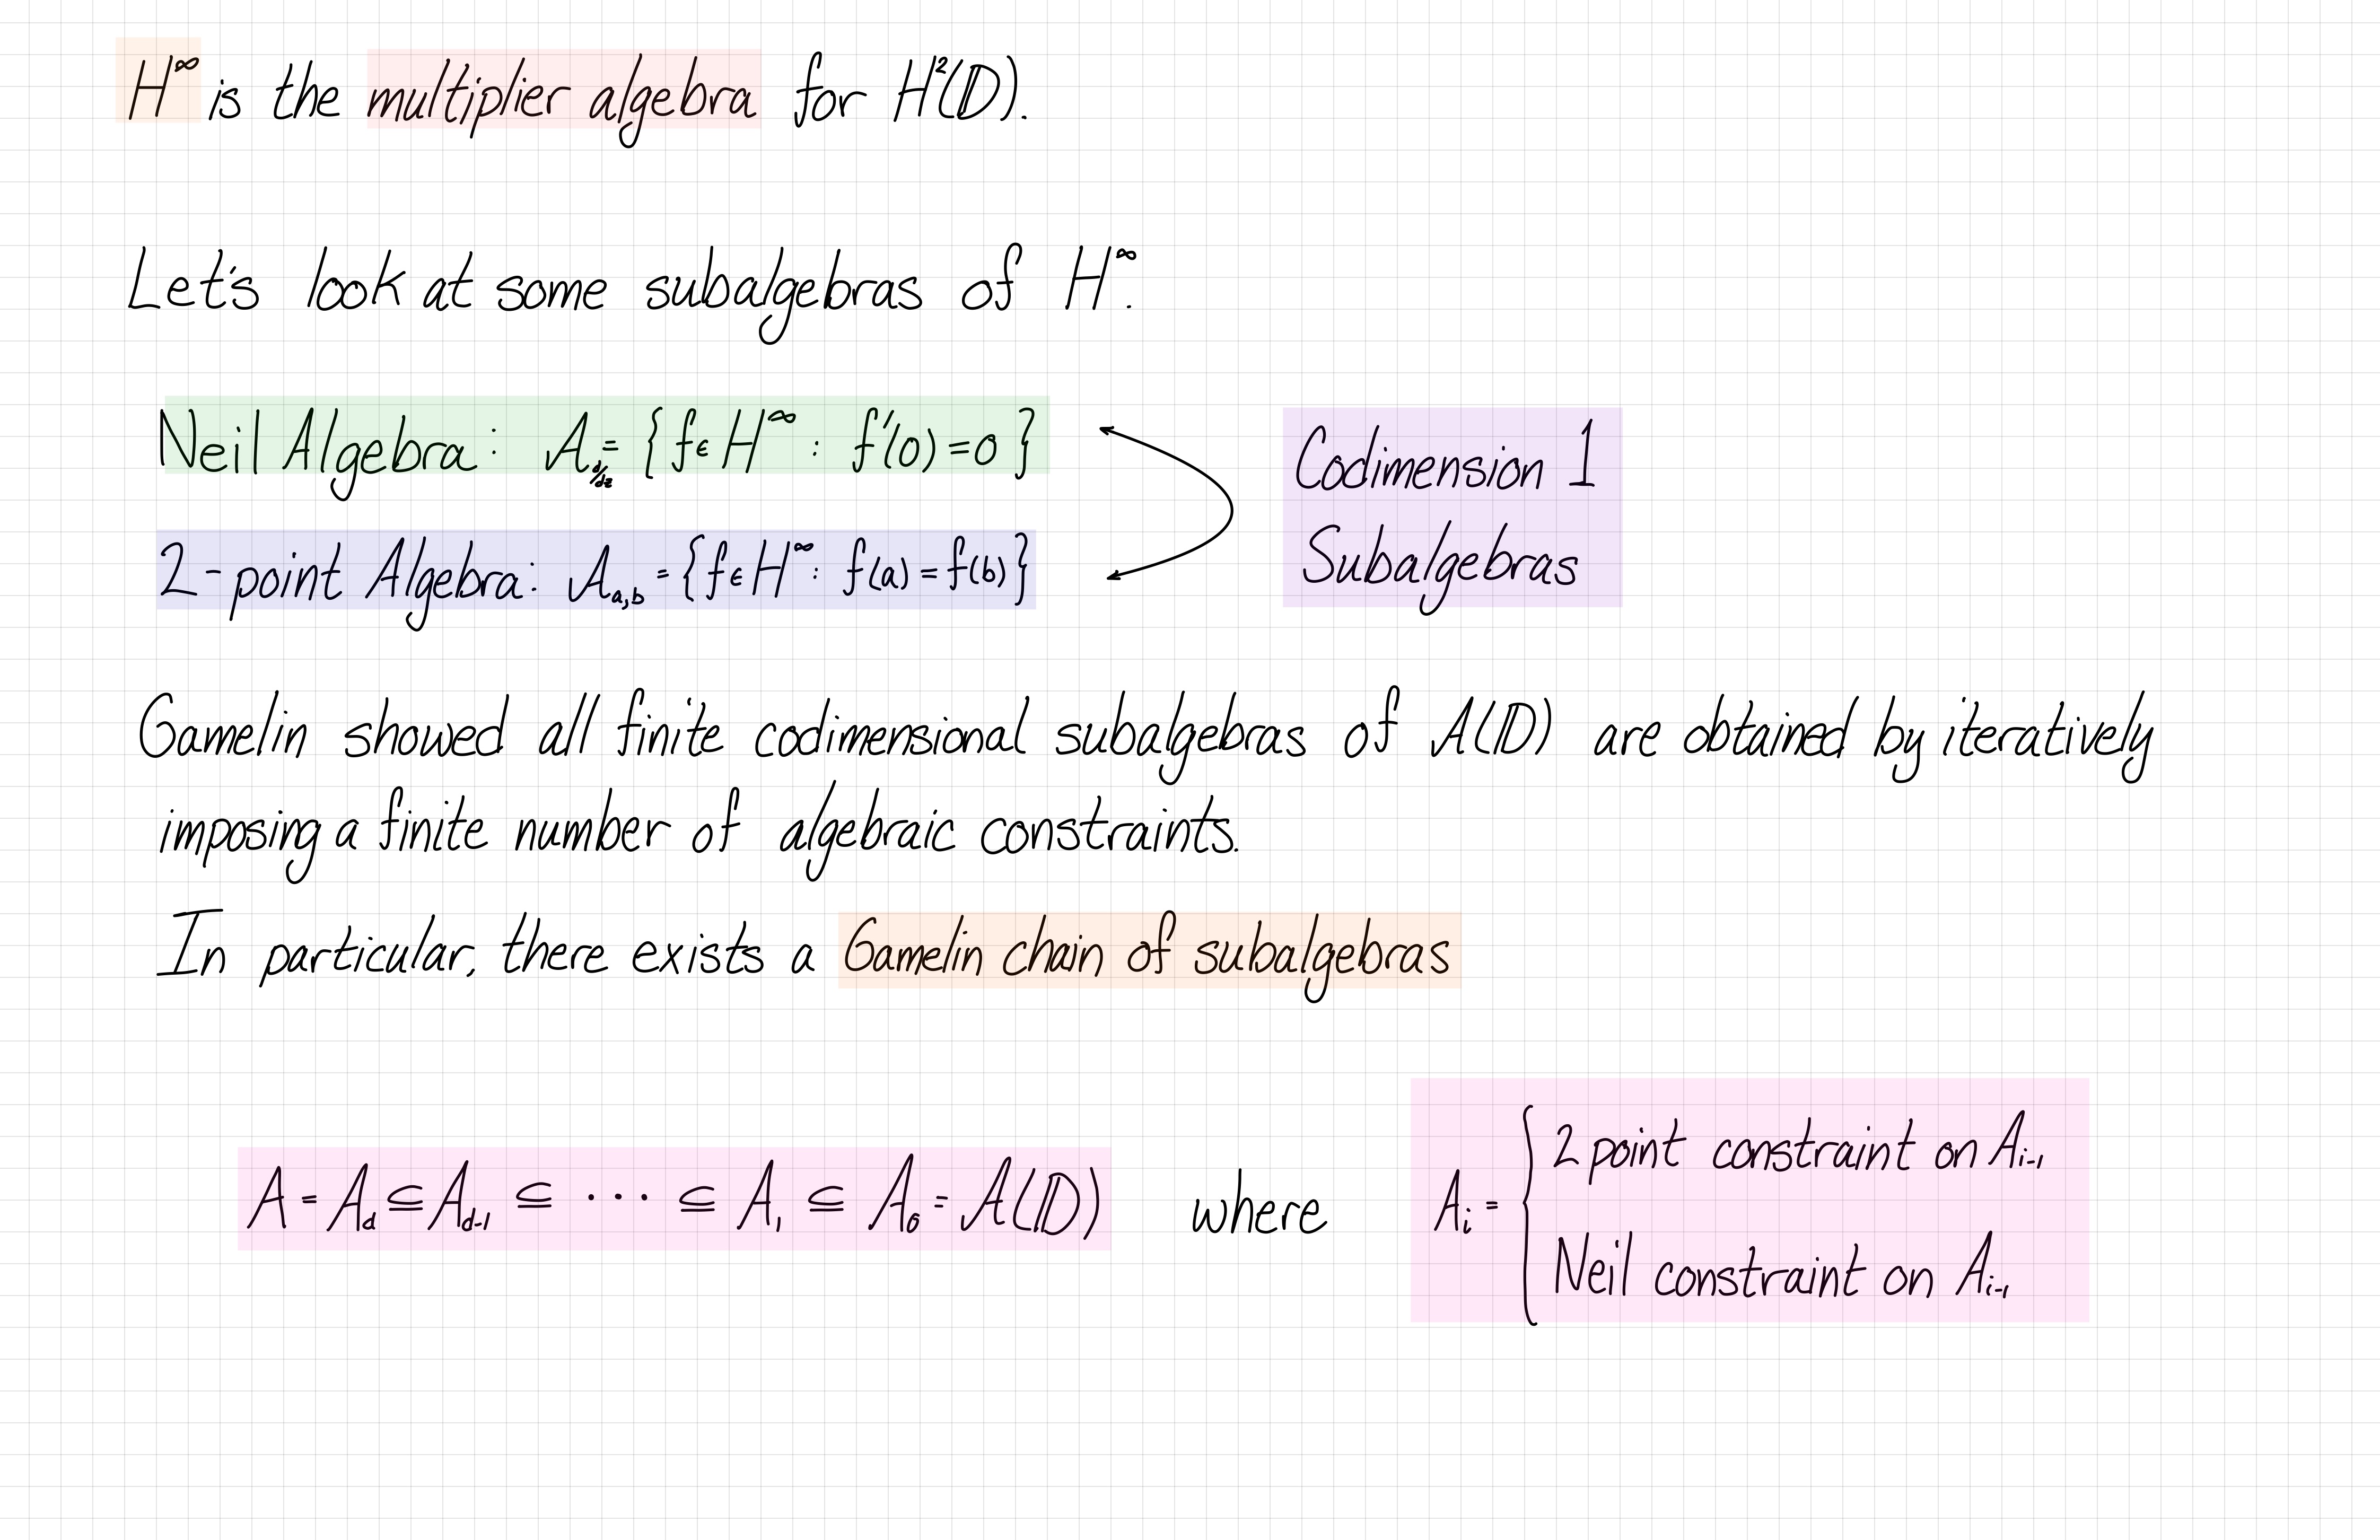 H^∞ is the multiplier algebra for H²(𝔻).
Let's look at some subalgebras of H^∞.
Neil Algebra: A_{d/dz} = {f ∈ H^∞ : f'(0) = 0}
2-point Algebra: A_{a,b} = {f ∈ H^∞ : f(a) = f(b)}
Codimension 1
Subalgebras
Gamelin showed all finite codimensional subalgebras of A(𝔻) are obtained by iteratively
imposing a finite number of algebraic constraints.
In particular, there exists a Gamelin chain of subalgebras
A = A_d ⊆ A_{d-1} ⊆ ··· ⊆ A_1 ⊆ A_0 = A(𝔻) where A_i = {
2 point constraint on A_{i-1}
Neil constraint on A_{i-1}